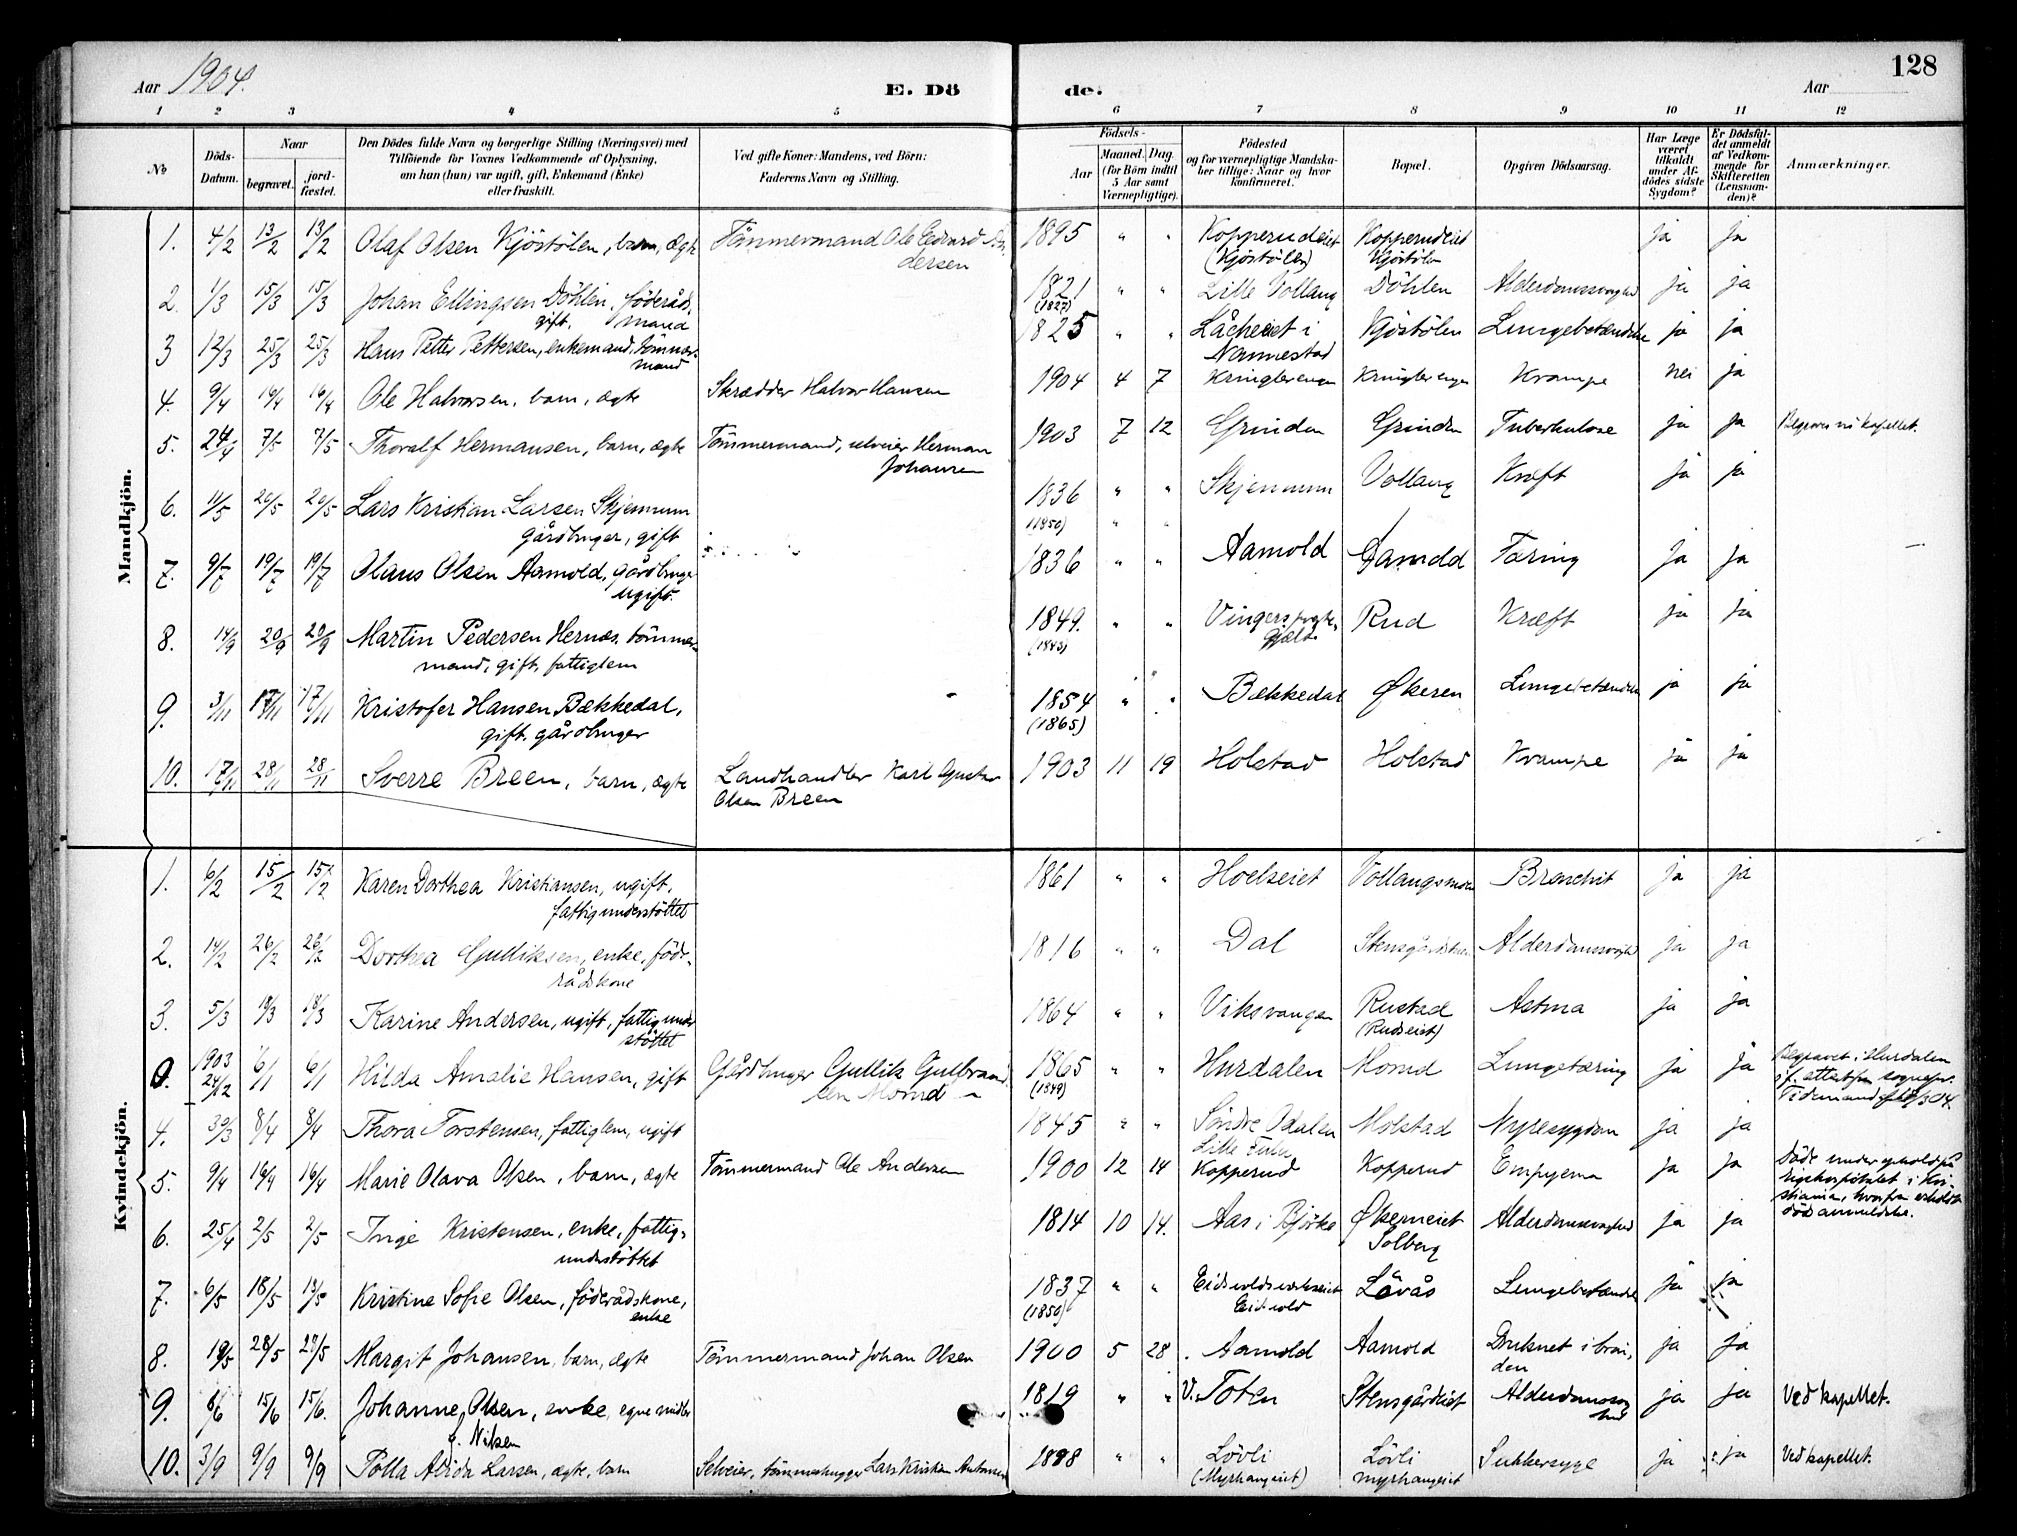 128
Aar 1904.
E. Dö
de.
Aar
1 2 3 4 5 6 7 8 9 10 11 12
No
Döds-Datum.
Naar
begravet.
jord-fæstet.
Den Dödes fulde Navn og borgerlige Stilling (Næringsvei) med
Tilföiende for Voxnes Vedkommende af Oplysning,
om han (hun) var ugift, gift, Enkemand (Enke)
eller fraskilt.
Ved gifte Koner: Mandens, ved Börn:
Faderens Navn og Stilling.
Födsels-
Aar
Maaned. Dag.
(for Börn indtil
5 Aar samt
Værnepligtige).
Födested
og for værnepligtige Mandska-
ber tillige: Naar og hvor
konfirmeret.
Bopæl.
Opgiven Dödsaarsag.
Har Læge
været
tilkaldt
under Af-
dödes sidste
Sygdom?
Er Dödsfal-
det anmeldt
af Vedkom-
mende for
Skifteretten
(Lensman-
den)?
Anmærkninger.
Mandkjön.
1. 4/2 13/2 13/2 Olaf Olsen Kjöstölen, barn, ægte Tömmermand Ole Edvard An- 1895 " " Kopperudeiet Kopperudeiet ja ja
dersen (Kjöstölen) Kjöstölen
2. 1/3 15/3 15/3 Johan Ellingsen Döhlen, föderåd, 1821 " " Lille Vollaug Döhlen Alderdomssvaghed ja ja
gift. mand (1827)
3 12/3 25/3 25/3 Hans Petter Pettersen, enkemand, tömmer- 1825 " " Låcheiet i Kjöstölen Lungebetændelse ja ja
mand Nannestad
4. 9/4 16/4 16/4 Ole Halvorsen, barn, ægte Skrædder Halvor Hansen 1904 4 7 Kringlerengen Kringlerengen Krampe nei ja
5. 24/4 7/5 7/5 Thoralf Hermansen, barn, ægte Tömmermand, selveier Herman 1903 7 12 Grinden Grinden Tuberkulose ja ja kapellet.
Johansen
6. 11/5 20/5 20/5 Lars Kristian Larsen Skjennum 1836 " " Skjennum Vollaug Kræft ja ja
gårdbruger, gift (1850) " "
7. 9/7 19/7 19/7 Olaus Olsen Aamold, gårdbruger 1836 " " Aamold Aamold Tæring ja ja
ugift.
8. 14/9 20/9 20/9 Martin Pedersen Hernæs, tömmer- 1849. " " Vingers præste- Rud Kræft ja ja
mand, gift, fattiglem gjæld
9. 3/11 17/11 17/11 Kristofer Hansen Bækkedal, 1854 " " Bækkedal Økeren Lungebetændelse ja ja
gift, gårdbruger (1865)
10. 17/11 28/11 28/11 Sverre Breen, barn, ægte Landhandler Karl Gustav 1903 11 19 Holstad Holstad Krampe ja ja
Olsen Breen
Kvindekjön.
1. 6/2 15/2 15/2 Karen Dorthea Kristiansen, ugift, 1861 " " Hoelseiet Vollaugsmoen Bronchit ja ja
fattigunderstöttet
2. 14/2 26/2 26/2 Dorthea Gulliksen, enke, föde- 1816 " " Dal Alderdomssvaghed ja ja
rådskone
3. 5/3 18/3 18/3 Karine Andersen, ugift, fattigunder 1864 " " Viksvangen Rustad Astma ja ja
stöttet (Rudseiet)
0. 1903 24/12 6/1 6/1 Hilda Amalie Hansen, gift Gårdbruger Gullik Gulbrand 1865 " " Hurdalen Lungetæring ja ja Begravet i Hurdalen
sen (1849)
4. 30/3 8/4 8/4 Thora Torstensen, fattiglem, ugift 1845 " " Söndre Odalen Molstad Nyresygdom ja ja
5. 9/4 16/4 16/4 Marie Olava Olsen, barn, ægte Tömmermand Ole Andersen 1900 12 14 Kopperud Kopperud Empyema ja ja Döde under ophold på
Rigshospitalet i Kri-
stiania, hvorfra
dödsanmeldelse.
6. 25/4 2/5 2/5 Inge Kristensen, enke, fattig- 1814 10 14. Aas i Bjerke Økerneiet Alderdomssvaghed ja ja
understöttet Solberg
7. 6/5 18/5 18/5 Kristine Sofie Olsen, föderådskone, 1837 " " Eidsvoldsverkseiet Lövås Lungebetændelse ja ja
enke (1850) Eidsvold
8. 19/5 28/5 29/5 Margit Johansen, barn, ægte Tömmermand Johan Olsen 1900 5 28 Aamold Aamold Druknet i brön- ja ja
den
9. 8/6 15/6 15/6. Johanne Olsen, enke, egne midler 1819 " " V. Toten Stensgårdeiet Alderdomssvag ja ja Ved kapellet.
f. Nilsen hed
10. 3/9 9/9 9/9 Polla Alvida Larsen, ægte, barn Selveier, tömmerhugger Lars Kristian Antonsen 1898 " " Lövli Lövli Sukkersyge ja ja Ved kapellet.
(Myrhaugeiet) Myrhaugeiet